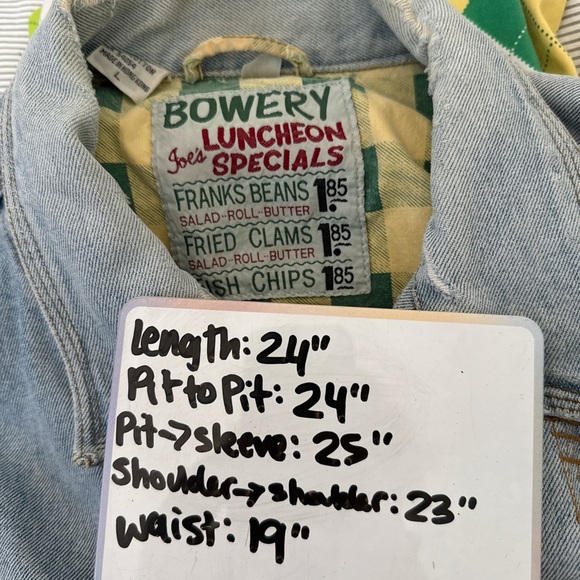 COTTON
MADE IN HONG KONG
L
BOWERY
Joe's LUNCHEON
SPECIALS
FRANKS BEANS 1.85
SALAD-ROLL-BUTTER
FRIED CLAMS 1.85
SALAD-ROLL-BUTTER
FISH CHIPS 1.85
Length: 24"
Pit to Pit: 24"
Pit→sleeve: 25"
Shoulder→shoulder: 23"
Waist: 19"